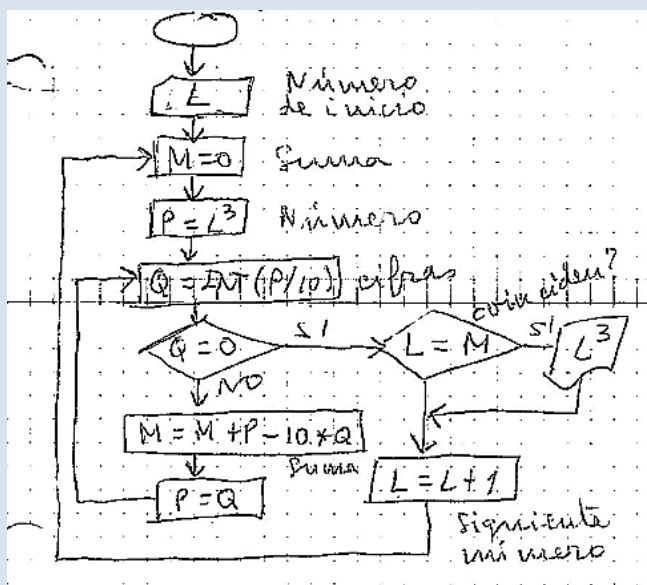 L Número
de inicio
M=0 Suma
P=L³ Número
Q=INT(P/10) cifras
coinciden?
Q=0 SI L=M SI L³
NO
M=M+P-10*Q
Suma
P=Q L=L+1
Siguiente
número